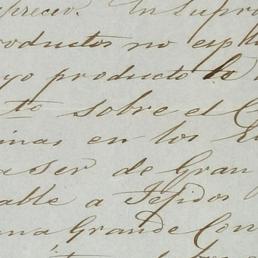 aprecio. En Supr
productos no espl
yo producto le
to sobre el C
inas en los
aser de Gran
able a Tejidos
una Grande Con